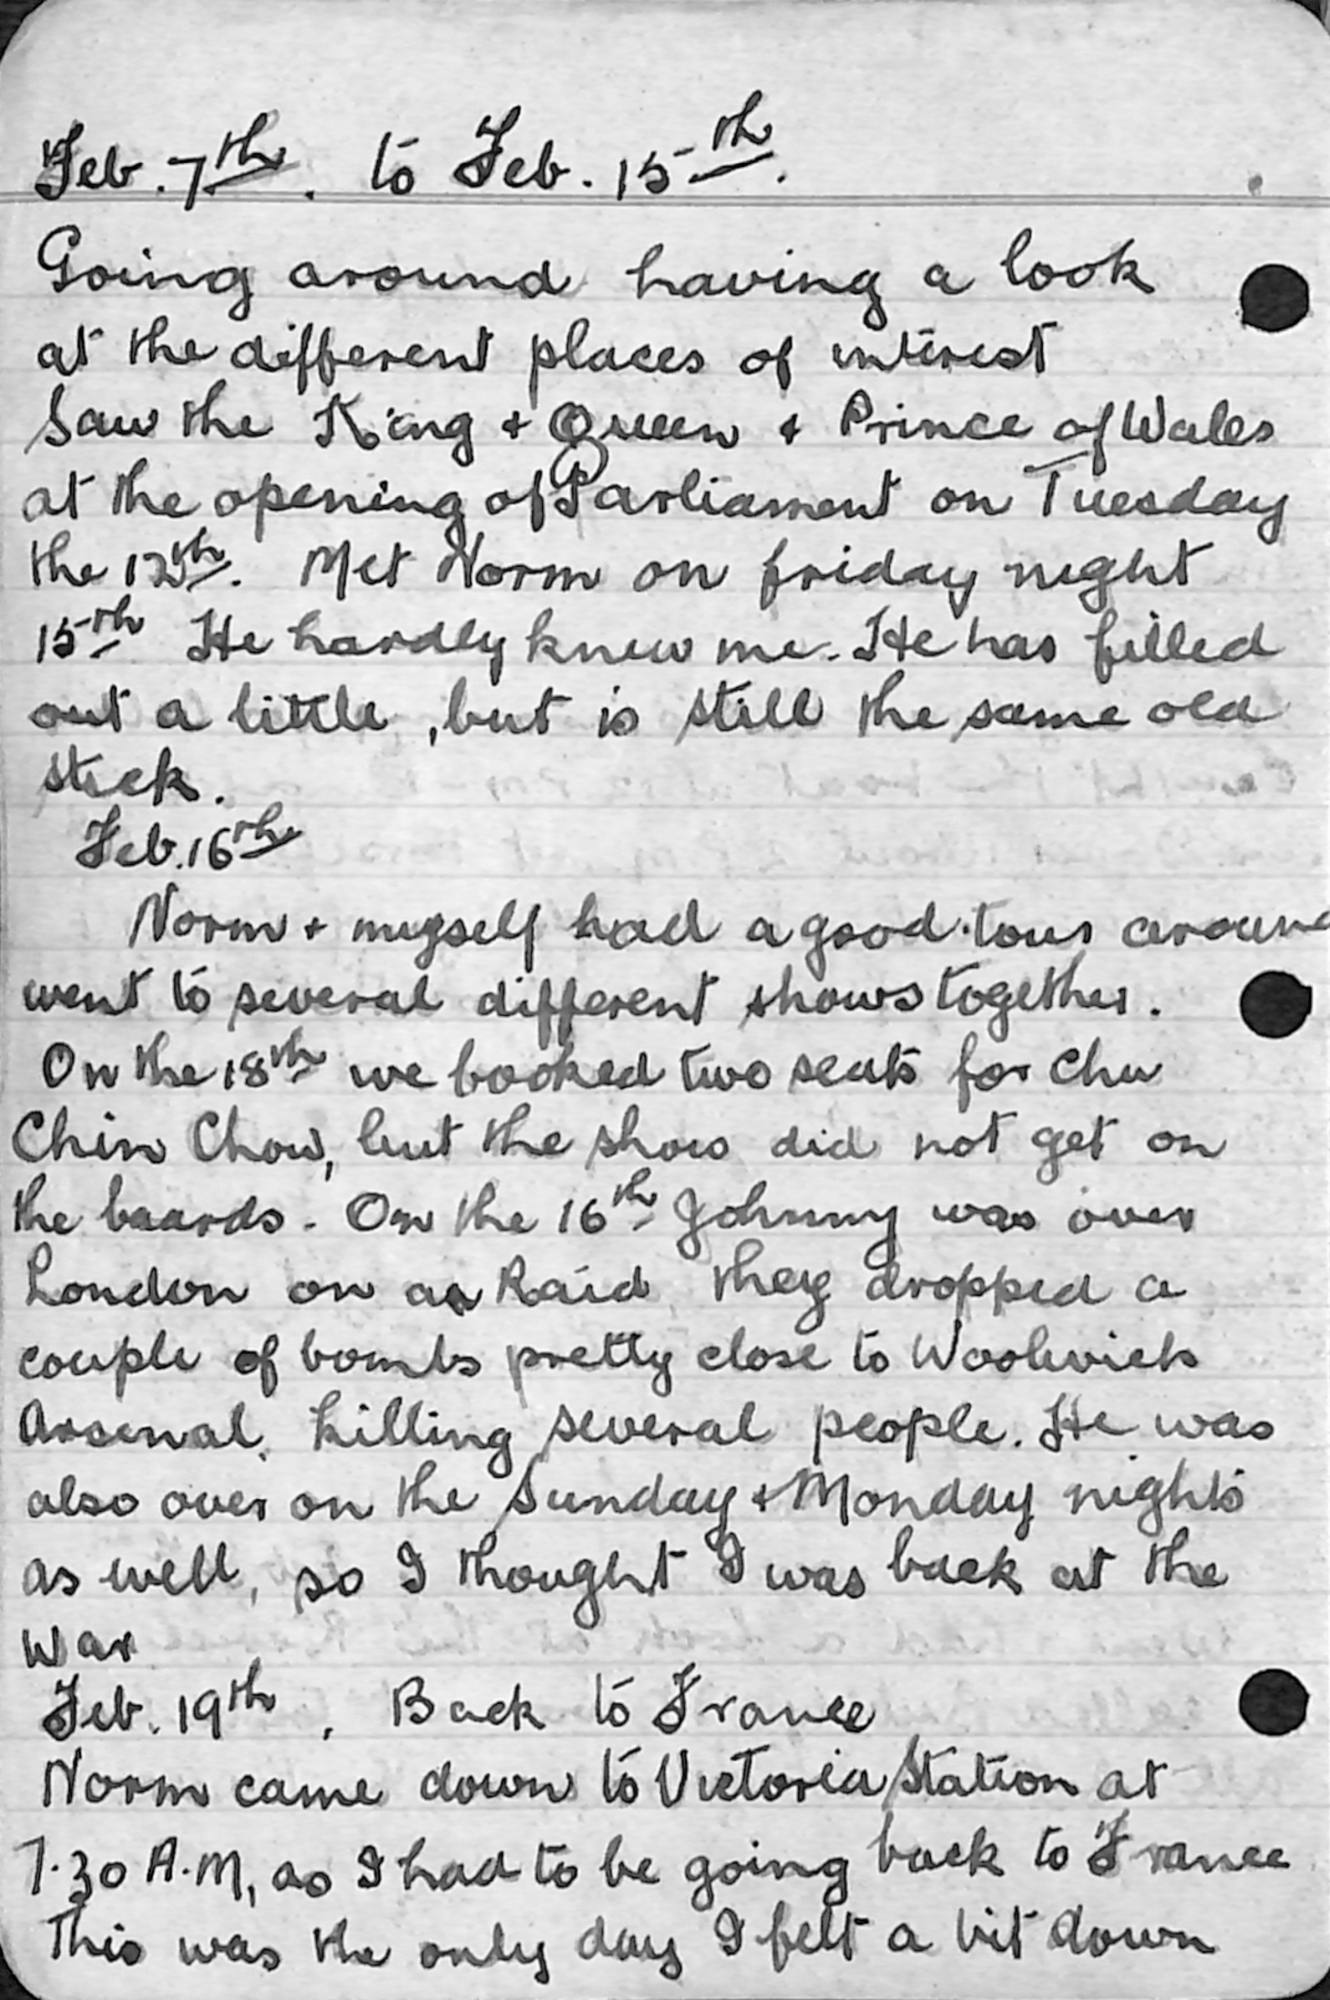 Feb. 7th. to Feb. 15th.
Going around having a look
at the different places of interest
Saw the King + Queen + Prince of Wales
at the opening of Parliament on Tuesday
the 12th. Met Norm on friday night
15th He hardly knew me. He has filled
out a little, but is still the same old
stick.
Feb. 16th
Norm + mygself had a good tour around
went to several different shows together.
On the 18th we booked two seats for Chu
Chin Chow, but the show did not get on
the boards. On the 16th Johnny was over
London on a Raid they dropped a
couple of bombs pretty close to Woolwich
Arsenal, killing several people. He was
also over on the Sunday + Monday nights
as well, so I thought I was back at the
War
Feb. 19th, Back to France
Norm came down to Victoria Station at
7.30 A.M, as I had to be going back to France
This was the only day I felt a bit down